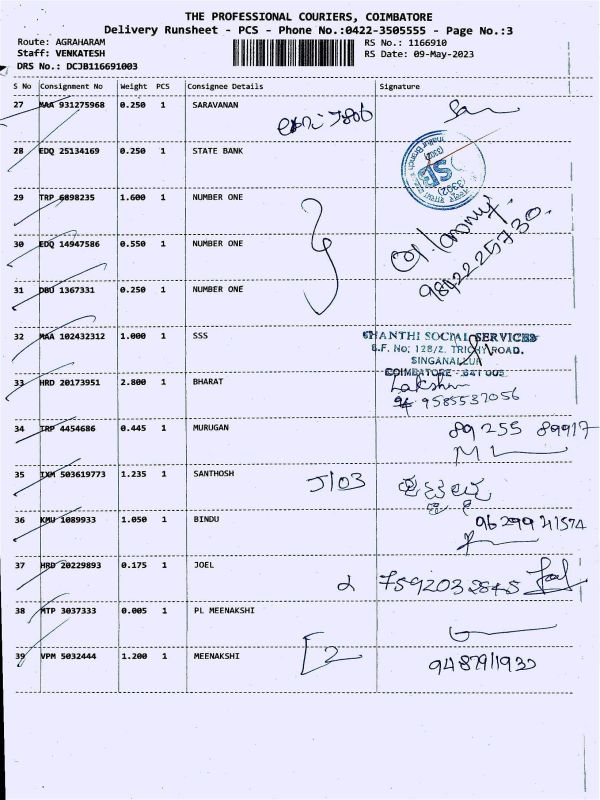 THE PROFESSIONAL COURIERS, COIMBATORE
Delivery Runsheet - PCS - Phone No.:0422-3505555 - Page No.:3
Route: AGRAHARAM RS No.: 1166910
Staff: VENKATESH RS Date: 09-May-2023
DRS No.: DCJB116691003
S No Consignment No Weight PCS Consignee Details Signature
27 MAA 931275968 0.250 1 SARAVANAN
28 EDQ 25134169 0.250 1 STATE BANK
29 TRP 6898235 1.600 1 NUMBER ONE
30 EDQ 14947586 0.550 1 NUMBER ONE
9842225730
31 DBU 1367331 0.250 1 NUMBER ONE
32 MAA 102432312 1.000 1 SSS SHANTHI SOCIAL SERVICES
S.F. No; 128/2. TRICHY ROAD.
SINGANALLUR
COIMBATORE - 641 005
33 HRD 20173951 2.800 1 BHARAT Lakshm
9585537056
34 TRP 4454686 0.445 1 MURUGAN 89 255 89917
35 IXM 503619773 1.235 1 SANTHOSH J103
36 KMU 1089933 1.050 1 BINDU 9629941574
37 HRD 20229893 0.175 1 JOEL 7592032845
38 MTP 3037333 0.005 1 PL MEENAKSHI
39 VPM 5032444 1.200 1 MEENAKSHI 2 9487911930